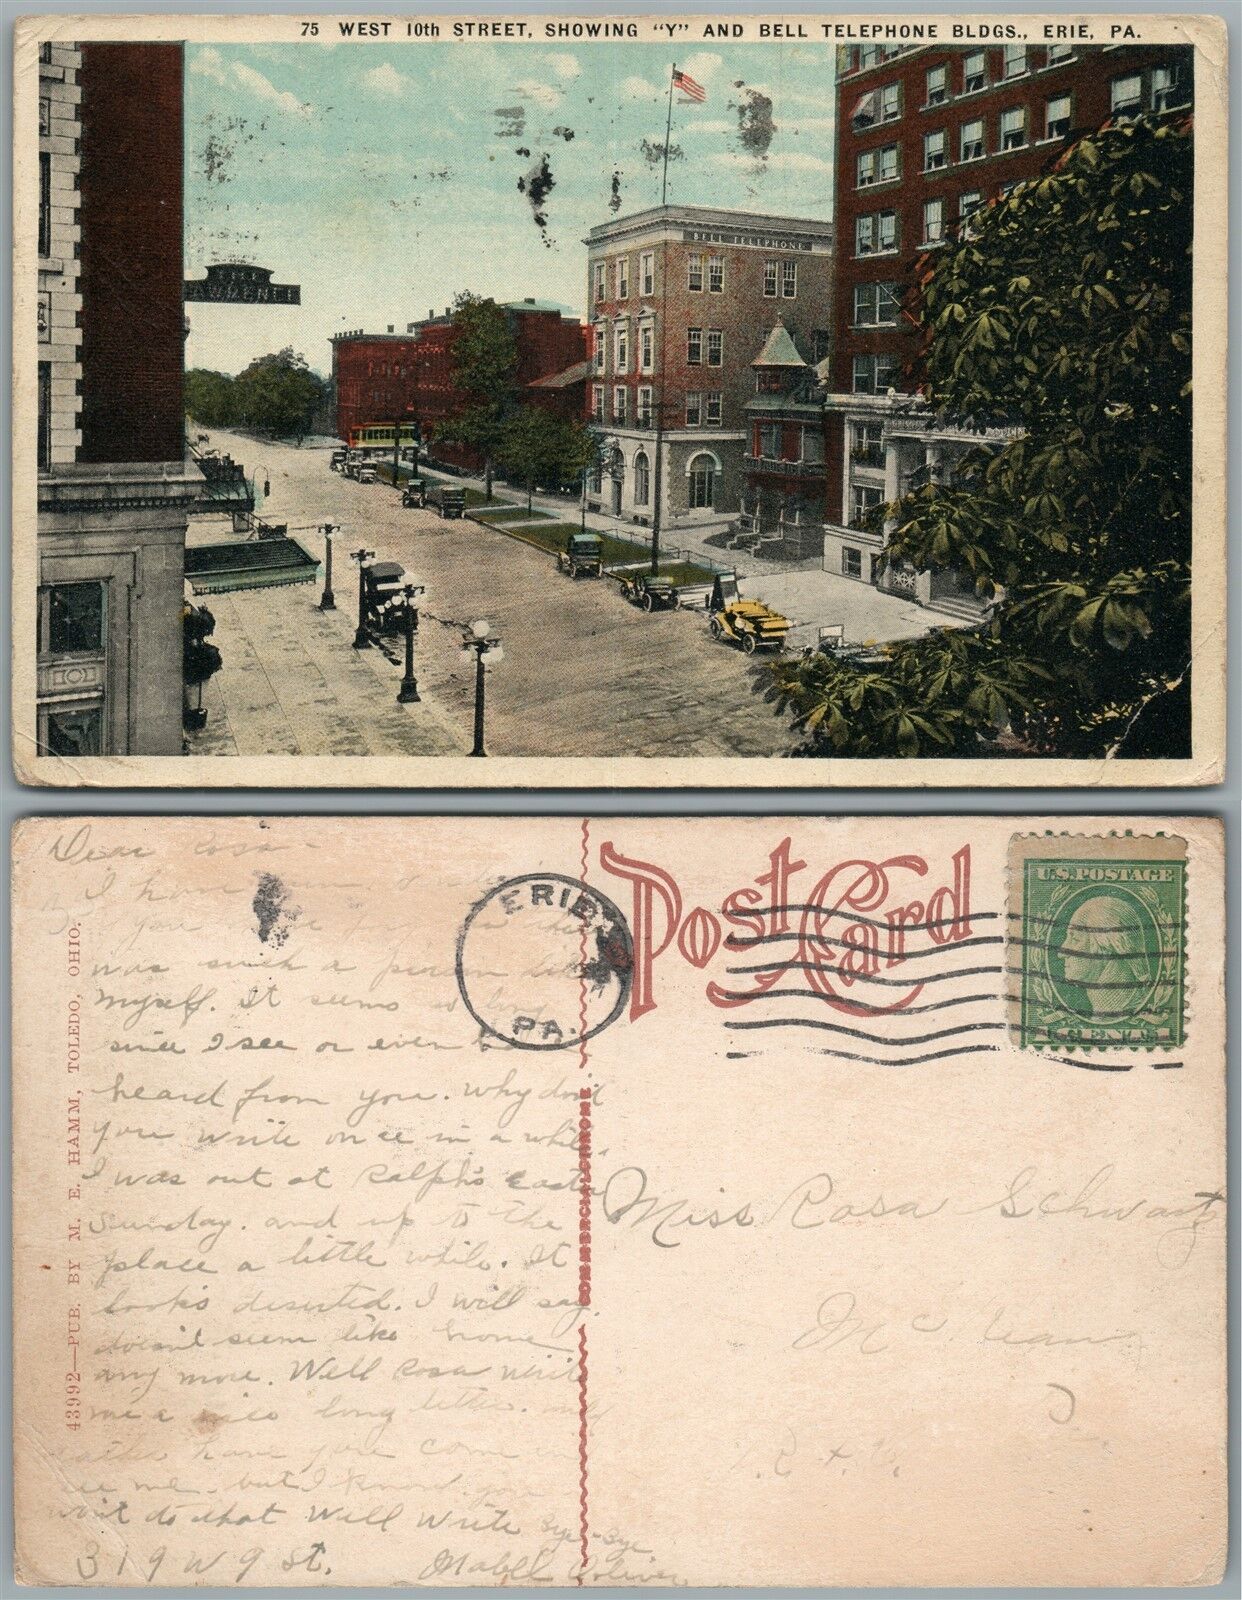 75 WEST 10th STREET, SHOWING "Y" AND BELL TELEPHONE BLDGS., ERIE, PA.
BELL TELEPHONE
LAWRENCE
Dear Rosa -
I have
you
was such a person like
myself. It seems so long
since I see or even
heard from you. Why don't
you write once in a while.
I was out at Ralph's Easter
Sunday. and up to the
place a little while. It
looks deserted. I will say
doesn't seem like home
any more. Well Rosa write
me a nice long letter.
rather have you come in
see me. but I know you
won't do that Well Write Bye-Bye
319 W 9 St. Mabel Oliver
43992—PUB. BY M. E. HAMM, TOLEDO, OHIO.
COMMERCIALCHROME
ERIE
PA.
Post Card
U.S. POSTAGE
1 CENT 1
Miss Rosa Schwartz
McKean